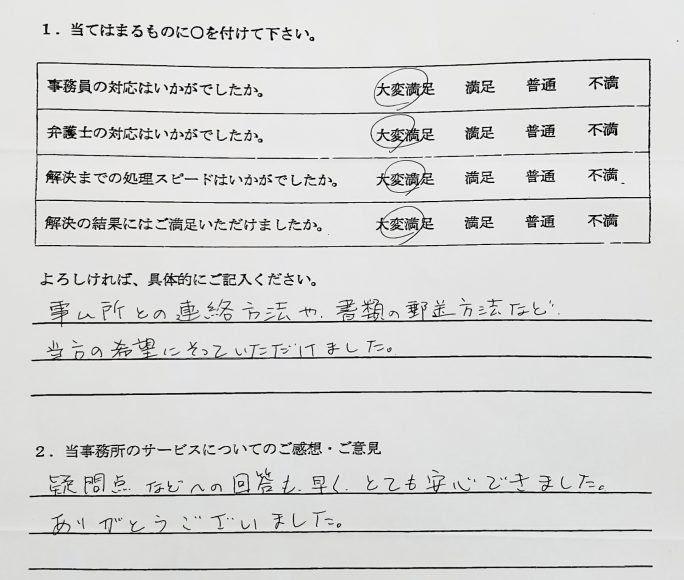 1．当てはまるものに○を付けて下さい。
事務員の対応はいかがでしたか。 大変満足 満足 普通 不満
弁護士の対応はいかがでしたか。 大変満足 満足 普通 不満
解決までの処理スピードはいかがでしたか。 大変満足 満足 普通 不満
解決の結果にはご満足いただけましたか。 大変満足 満足 普通 不満
よろしければ、具体的にご記入ください。
事ム所との連絡方法や、書類の郵送方法など、
当方の希望にそっていただけました。
2．当事務所のサービスについてのご感想・ご意見
疑問点などへの回答も、早く、とても安心できました。
ありがとうございました。